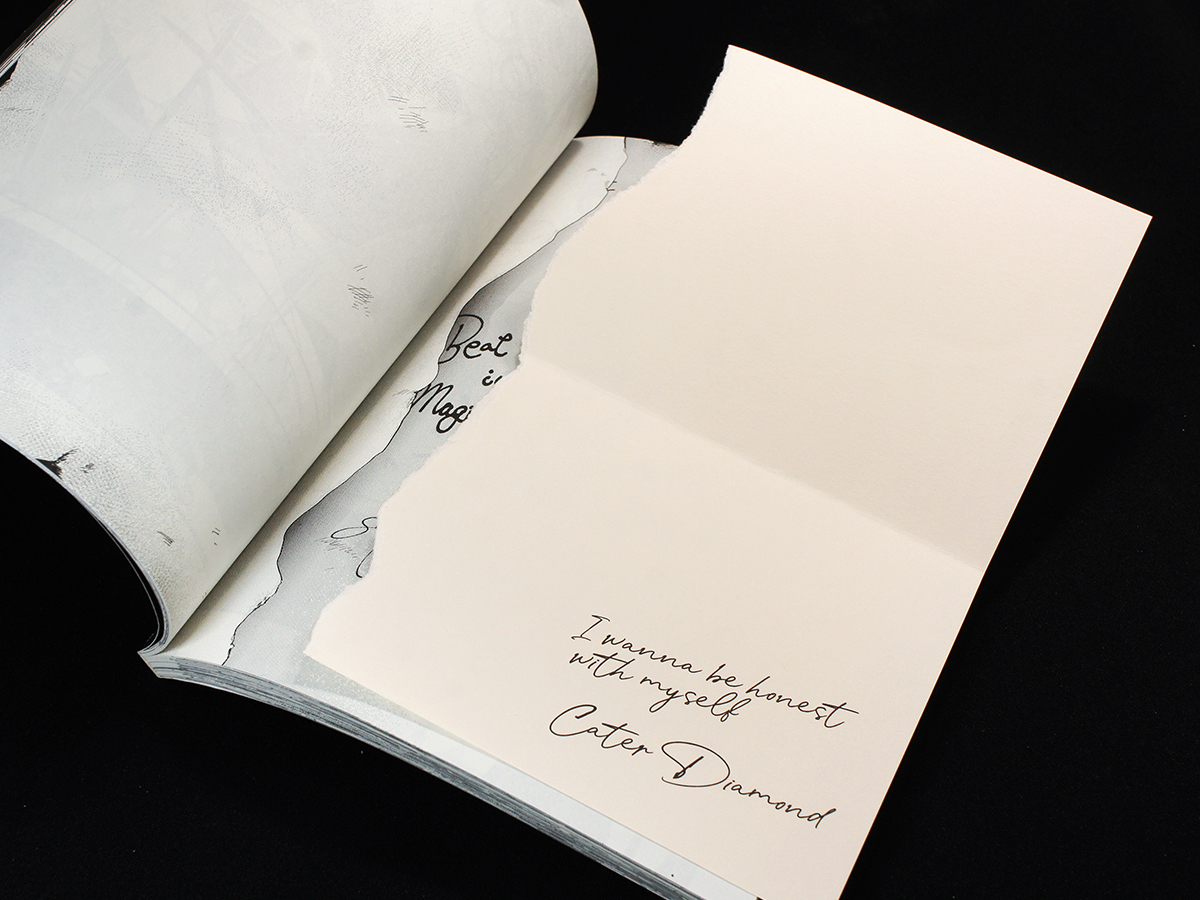 Beat
Magi
I wanna be honest
with myself
Cater Diamond